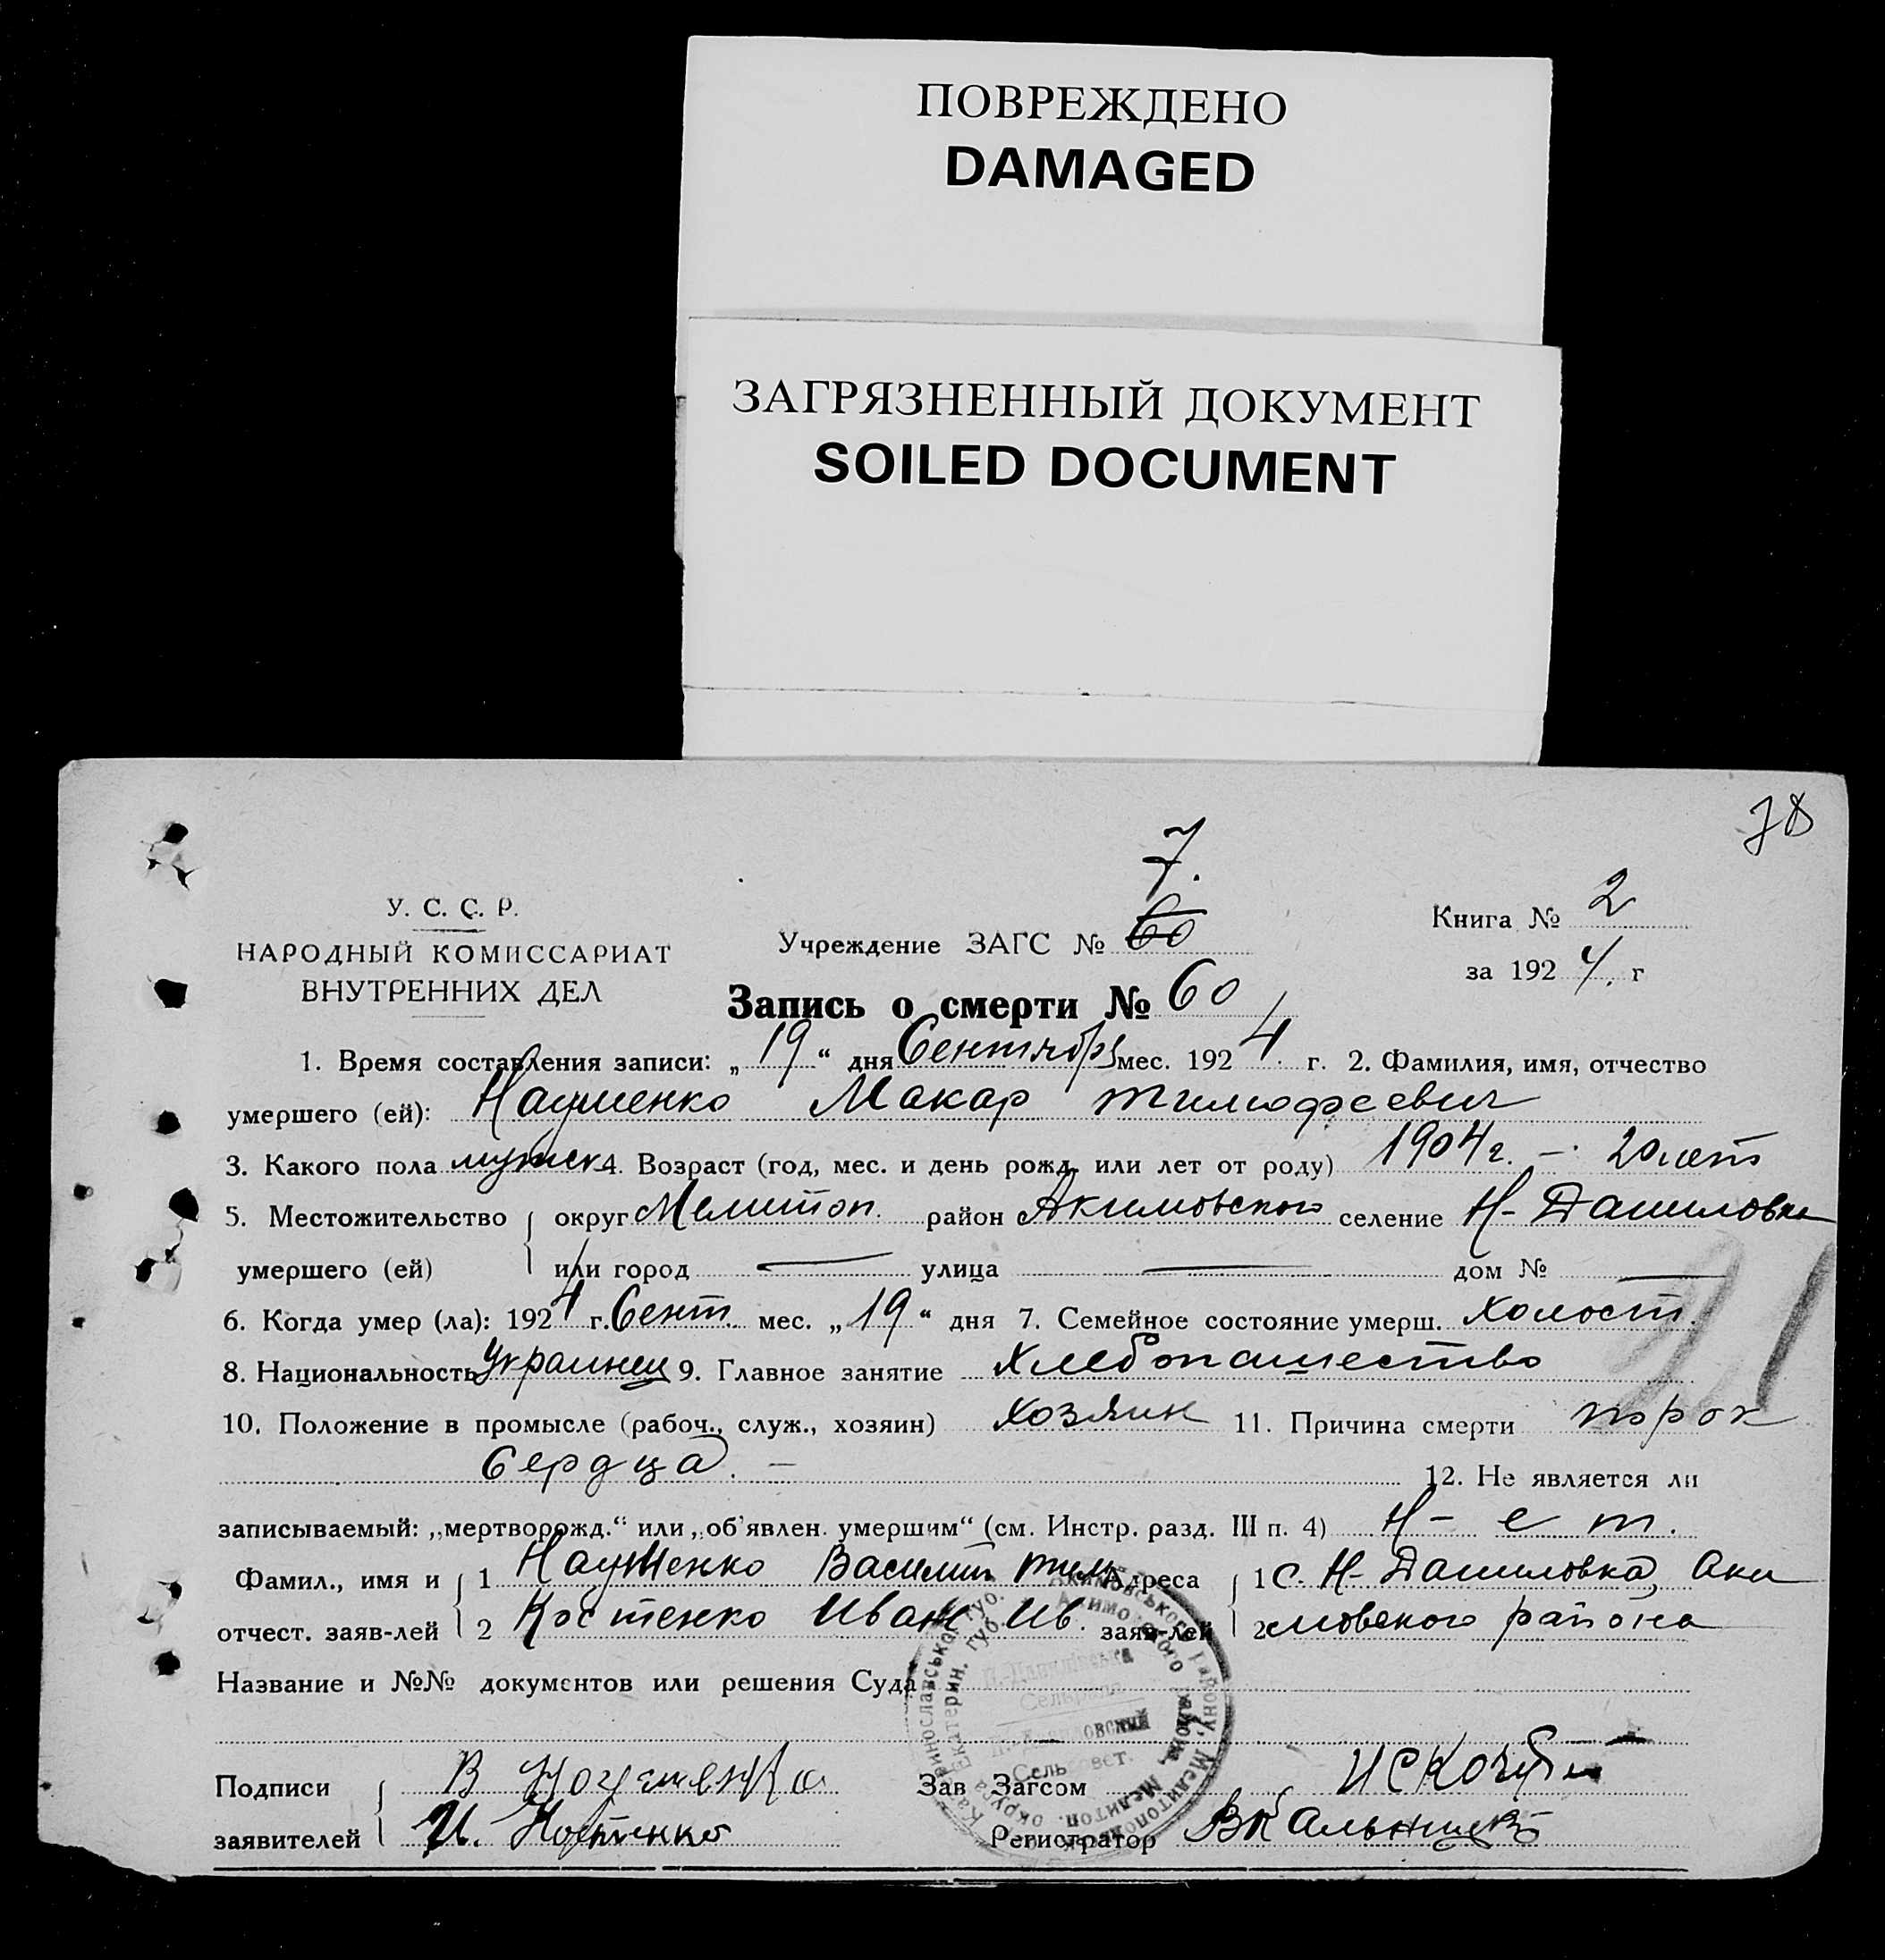 ПОВРЕЖДЕНО
DAMAGED
ЗАГРЯЗНЕННЫЙ ДОКУМЕНТ
SOILED DOCUMENT
78
7.
У. С. С. Р.
НАРОДНЫЙ КОМИССАРИАТ
ВНУТРЕННИХ ДЕЛ
Учреждение ЗАГС № 60
Книга № 2
за 1924. г
Запись о смерти № 60
1. Время составления записи: „19“ дня Сентября мес. 1924. г. 2. Фамилия, имя, отчество
умершего (ей): Науменко Макар тимофеевич
3. Какого пола мужск 4. Возраст (год, мес. и день рожд. или лет от роду) 1904 г. — 20 лет
5. Местожительство округ Мелитоп. район Акимовского селение Н-Даниловка
умершего (ей) или город — улица — дом № —
6. Когда умер (ла): 1924 г. Сент. мес. „19“ дня 7. Семейное состояние умерш. холост.
8. Национальность украинец 9. Главное занятие хлебопашество
21
10. Положение в промысле (рабоч., служ., хозяин) хозяин 11. Причина смерти порок
сердца. — 12. Не является ли
записываемый: „мертворожд.“ или „об'явлен. умершим“ (см. Инстр. разд. III п. 4) Н-ет.
Фамил., имя и 1 Науменко Василий тим. Адреса 1 с. Н-Даниловка, Аки
отчест. заяв-лей 2 Костенко Иван Ив. заяв-лей 2 мовского района
Название и №№ документов или решения Суда
Подписи В Науменко Зав Загсом
заявителей И. Костенко Регистратор
Сельрада
Сельсовет.